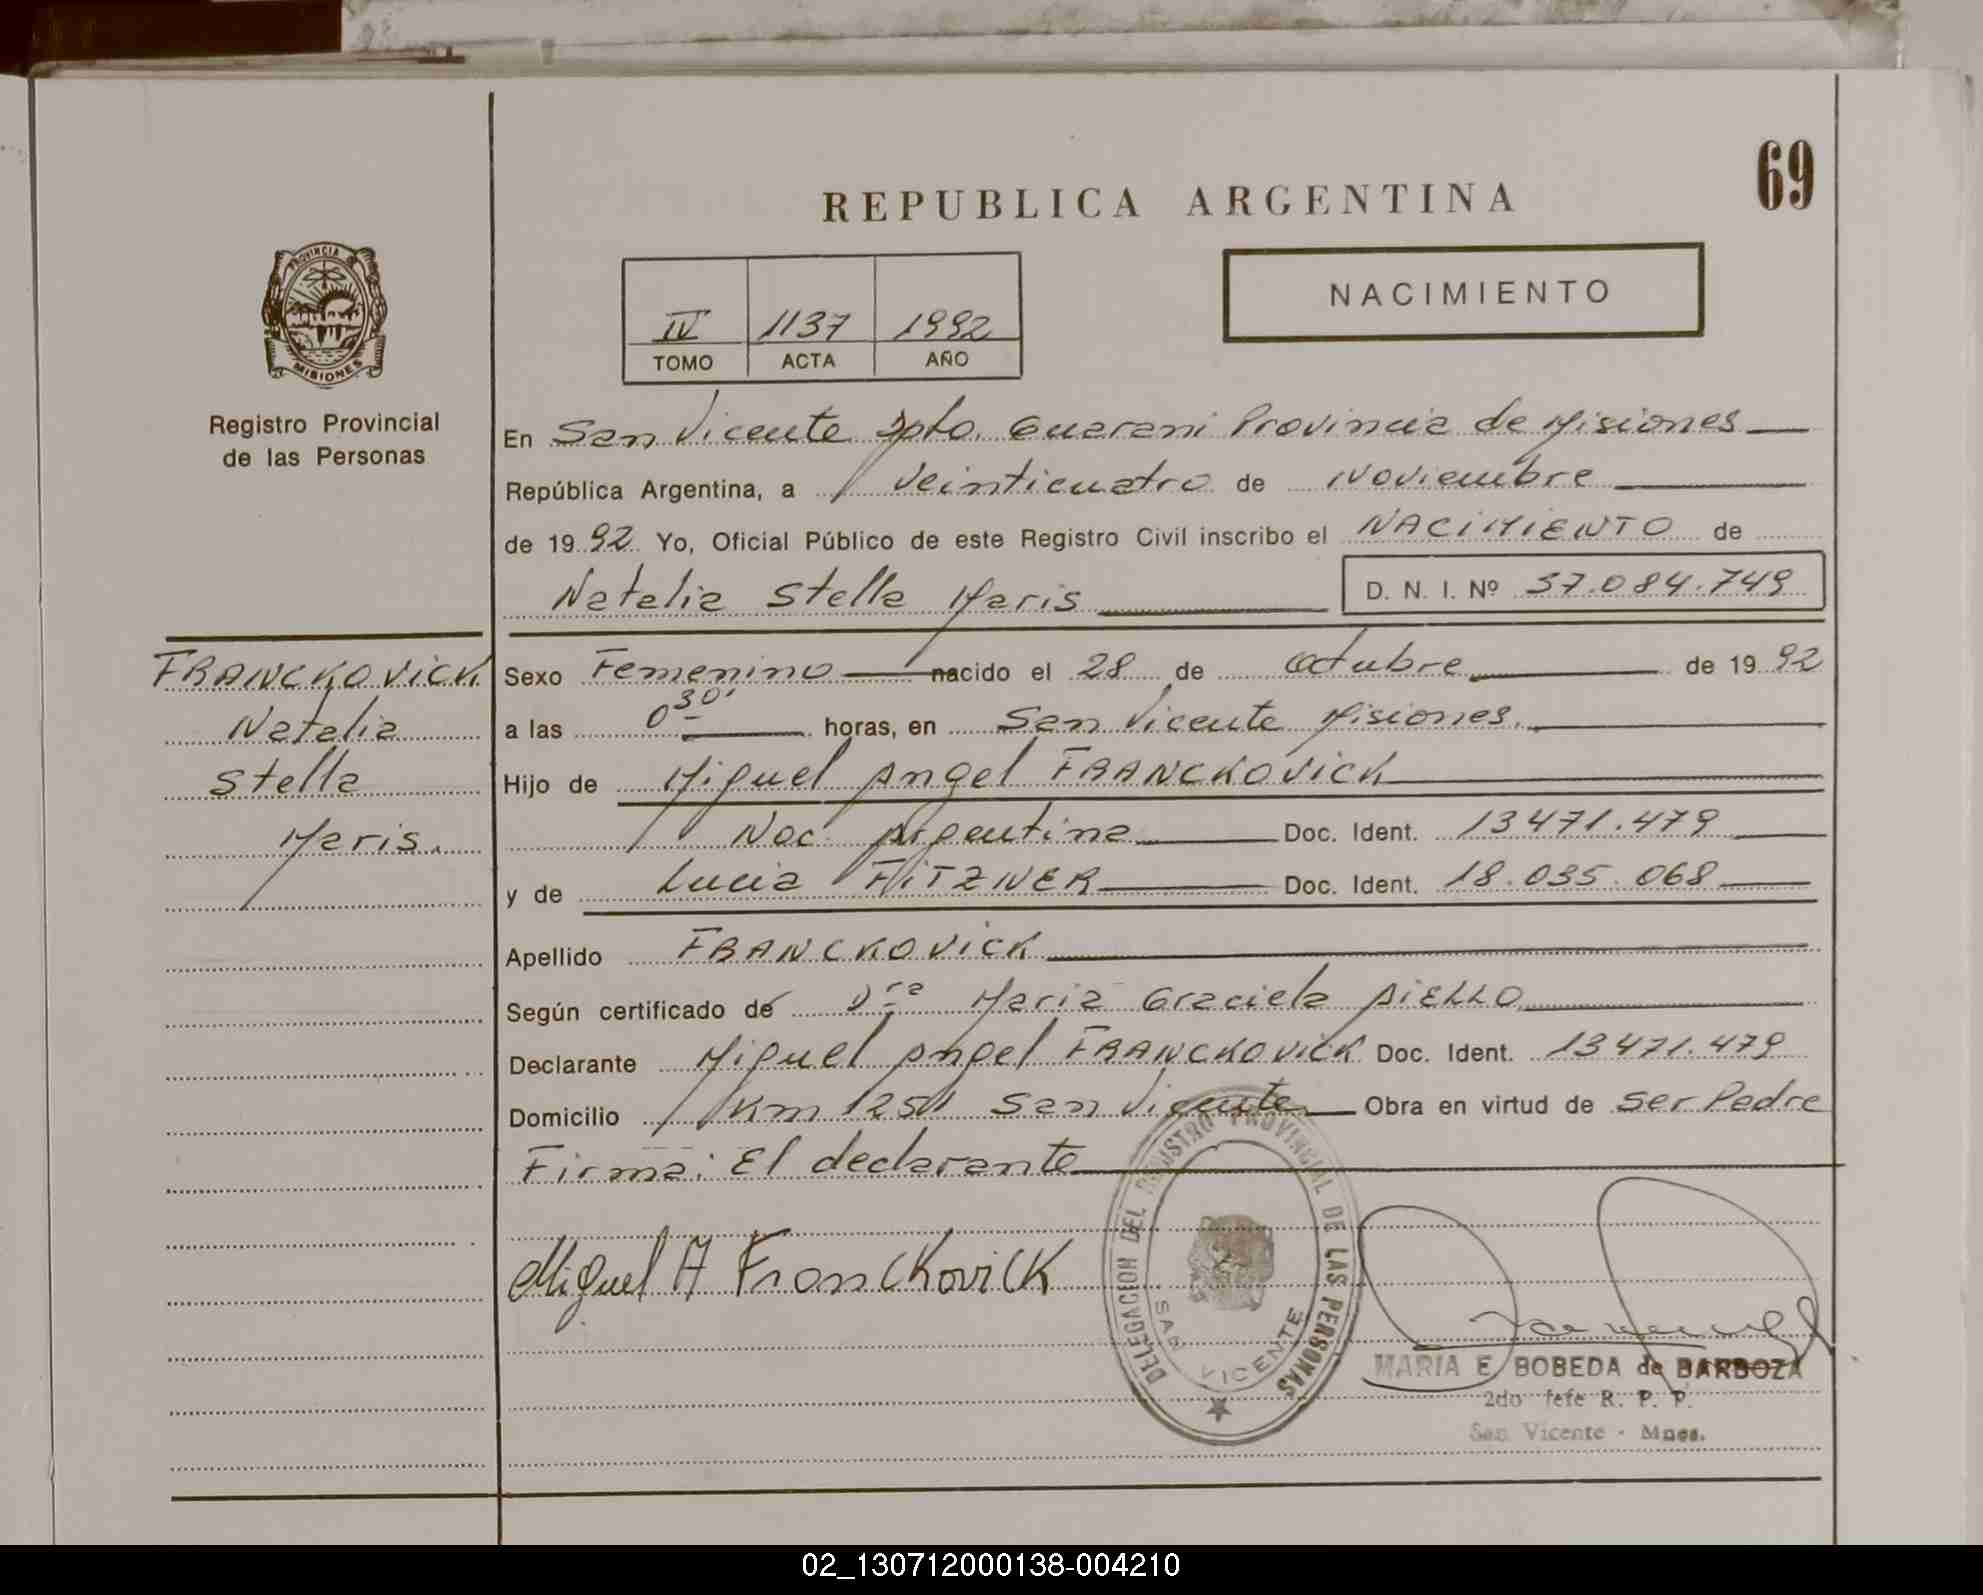 69
REPUBLICA ARGENTINA
PROVINCIA DE
MISIONES
NACIMIENTO
IV 1137 1992
TOMO ACTA AÑO
Registro Provincial
de las Personas
En San Vicente Dpto. Guarani Provincia de Misiones
República Argentina, a Veinticuatro de Noviembre
de 1992 Yo, Oficial Público de este Registro Civil inscribo el NACIMIENTO de
Natalia Stella Maris D. N. I. Nº 37.084.749
FRANCKOVICK
Natalia
Stella
Maris.
Sexo Femenino nacido el 28 de Octubre de 1992
a las 0 30' horas, en San Vicente Misiones.
Hijo de Miguel Angel FRANCKOVICK
Nac. Argentina Doc. Ident. 13471.479
y de Lucia FITZNER Doc. Ident. 18.035.068
Apellido FRANCKOVICK
Según certificado de Dra Maria Graciela AIELLO
Declarante Miguel Angel FRANCKOVICK Doc. Ident. 13471.479
Domicilio Km 1251 San Vicente Obra en virtud de ser Padre
Firma: El declarante
Miguel A Franckovick
DELEGACION DEL REGISTRO PROVINCIAL DE LAS PERSONAS
SAN VICENTE
MARIA E. BOBEDA de BARBOZA
2do Jefe R. P. P.
San Vicente - Mnes.
02_130712000138-004210